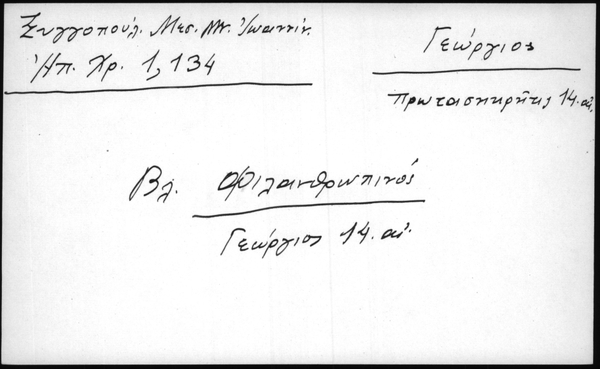 Ξυγγοπούλ. Μεσ. Μν. Ἰωαννίν.
Ἠπ. Χρ. 1, 134
Γεώργιος
πρωτασηκρῆτις 14. αἰ.
Βλ. Φιλανθρωπινός
Γεώργιος 14. αἰ.